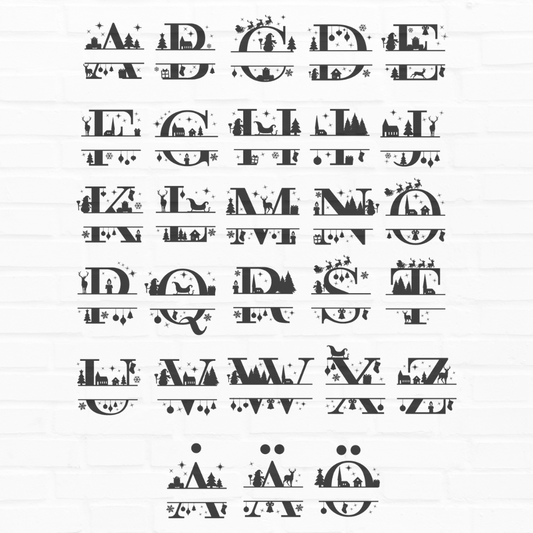 A B C D E
F G H I J
K L M N O
P Q R S T
U V W X Z
Å Ä Ö